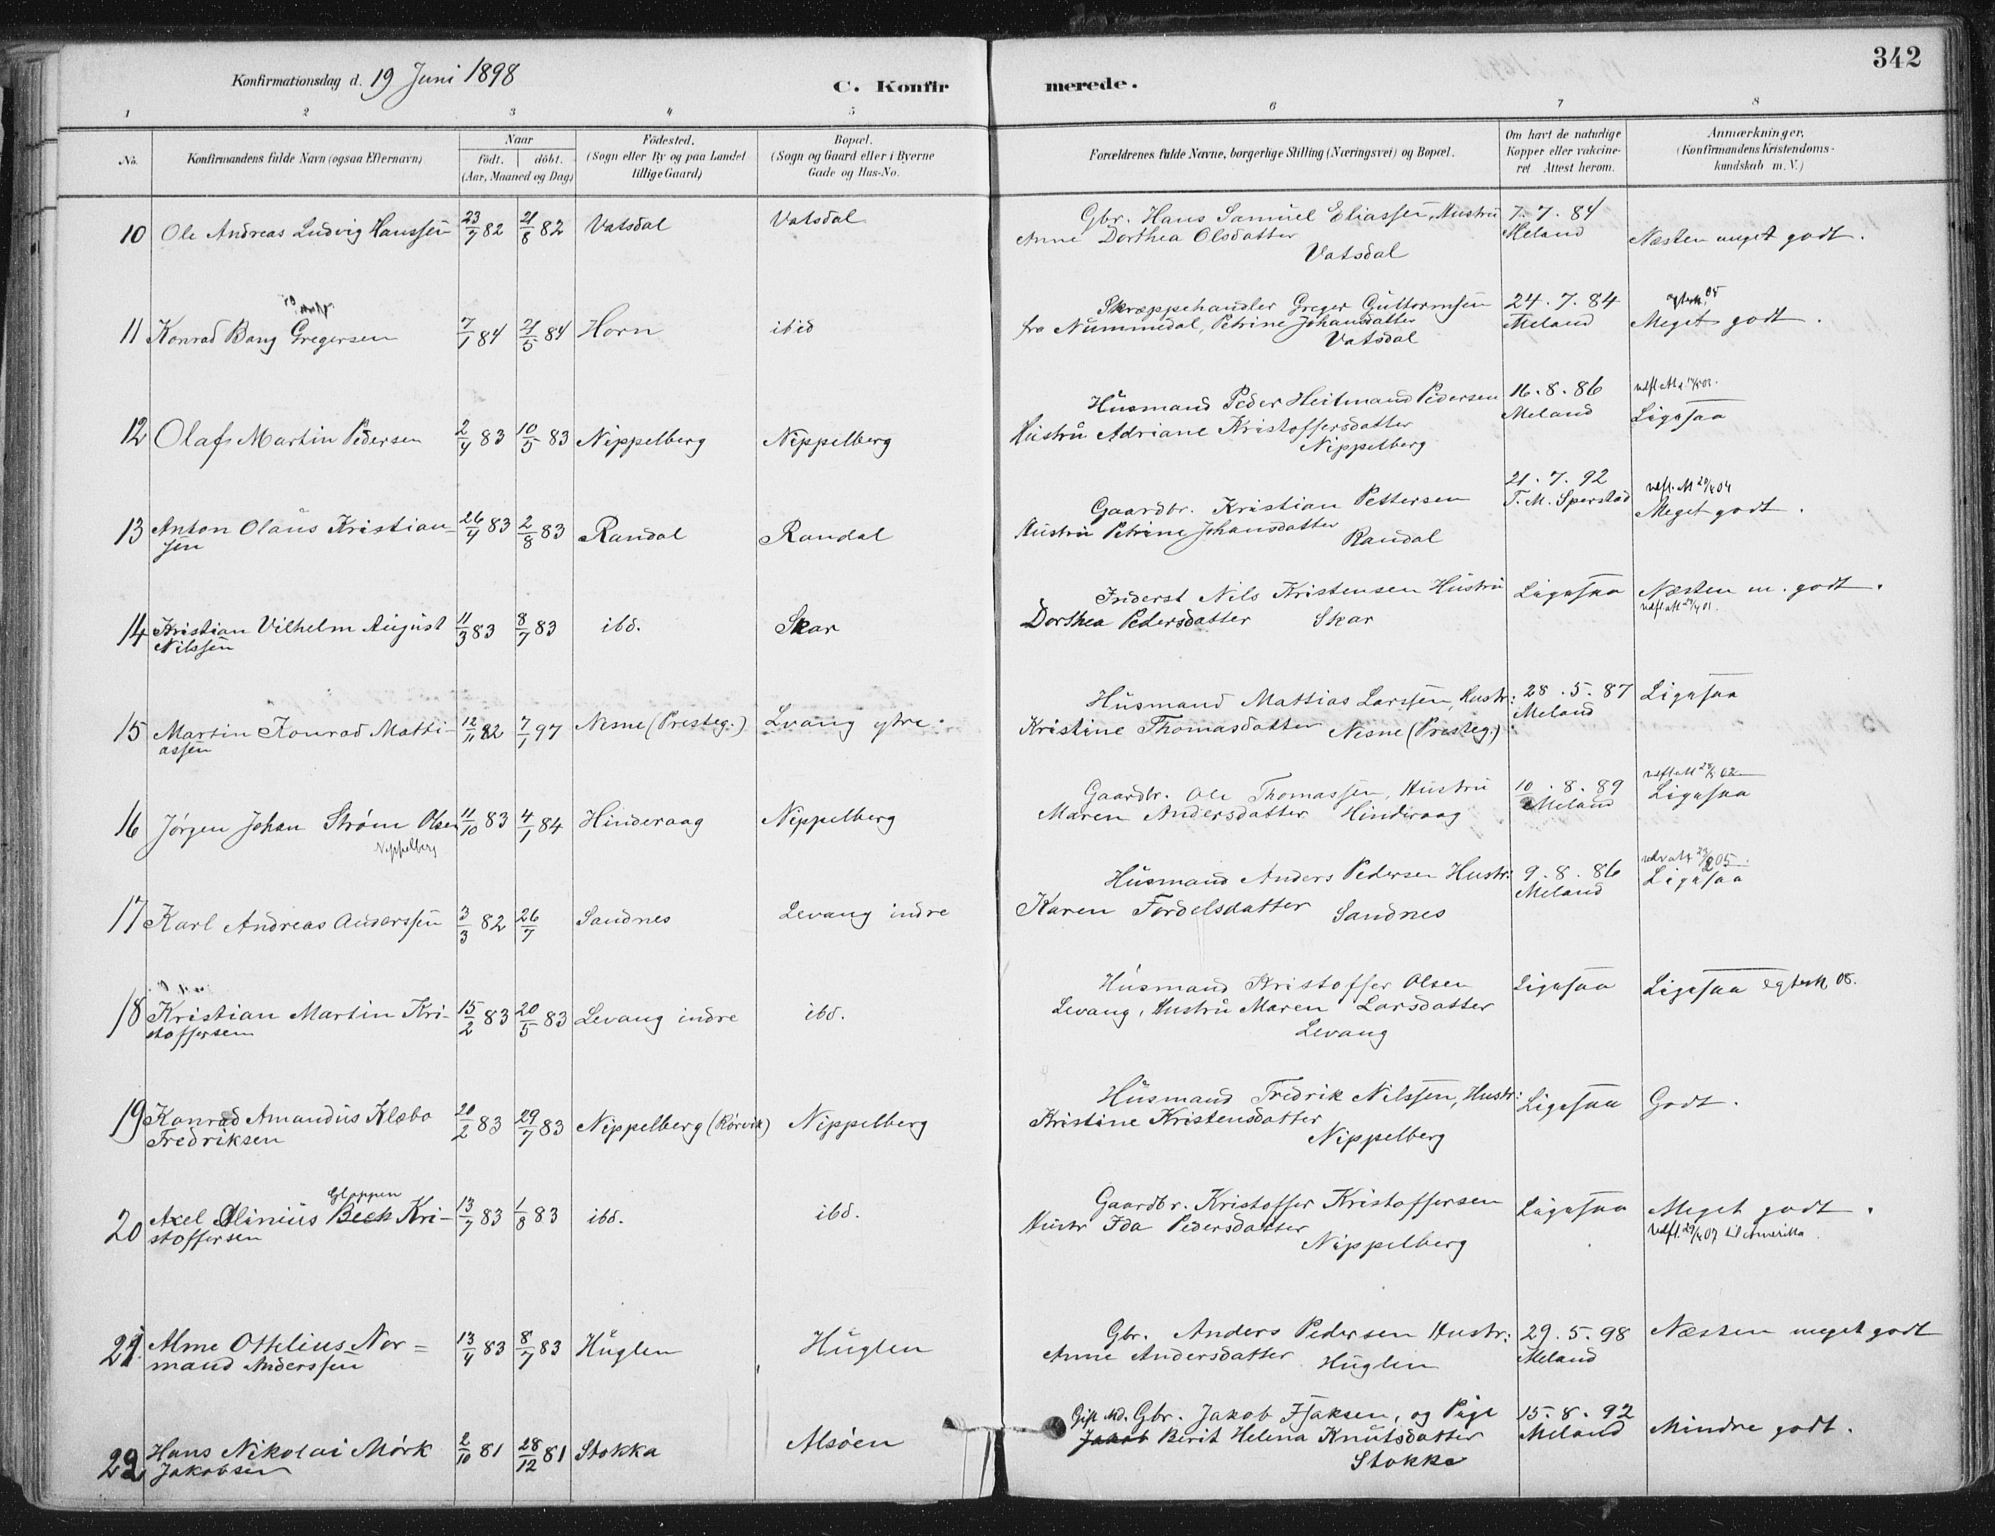 342
Konfirmationsdag d. 19 Juni 1898
C. Konfir merede.
1 2 3 4 5 6 7 8
No.
Konfirmandens fulde Navn (ogsaa Efternavn)
Naar
født. døbt.
(Aar, Maaned og Dag)
Fødested.
(Sogn eller By og paa Landet
tillige Gaard)
Bopæl.
(Sogn og Gaard eller i Byerne
Gade og Hus-No.
Forældrenes fulde Navne, borgerlige Stilling (Næringsvei) og Bopæl.
Om havt de naturlige
Kopper eller vakcine-
ret Attest herom.
Anmærkninger,
(Konfirmandens Kristendoms-
kundskab m. V.)
10 Ole Andreas Ludvig Hanssen 23/7 82 21/8 82 Vatsdal Vatsdal
Gbr. Hans Samuel Eliassen, Hustru
Anne Dorthea Olsdatter
Vatsdal
7.7.84
Meland
Næsten meget godt.
11 Konrad Bang Gregersen 7/1 84 21/5 84 Horn ibid
Skræppehandler Greger Guttormsen
fra Nummedal, Petrine Johansdatter
Vatsdal
24.7.84
Meland
Meget godt.
12 Olaf Martin Pedersen 2/4 83 10/5 83 Nippelberg Nippelberg
Husmand Peder Heitmand Pedersen
Hustru Adriane Kristoffersdatter
Nippelberg
16.8.86
Meland
Ligesaa
13 Anton Olaus Kristian-
sen 26/4 83 2/8 83 Randal Randal
Gaardbr. Kristian Pettersen
Hustru Petrine Johansdatter
Randal
21.7.92
T. M. Sperstad
Meget godt.
14 Kristian Vilhelm August
Nilssen 11/3 83 8/7 83 ibd. Skar
Inderst Nils Kristensen Hustru
Dorthea Pedersdatter Skar
Ligesaa
Næsten m. godt.
15 Martin Konrad Matti-
assen 12/11 82 7/1 97 Nesne (Presteg.) Levang ytre.
Husmand Mattias Larssen, Hustr:
Kristine Thomasdatter Nesne (Presteg.)
28.5.87
Meland
Ligesaa
16 Jørgen Johan Strøm Olsen
Nippelberg
11/10 83 4/1 84 Hinderaag Nippelberg
Gaardbr. Ole Thomassen, Hustru
Maren Andersdatter Hinderaag
10.8.89
Meland
Ligesaa
17 Karl Andreas Anderssen 3/3 82 26/7 Sandnes Levang indre
Husmand Anders Pedersen Hustr:
Karen Fordelsdatter Sandnes
9.8.86
Meland
Ligesaa
18 Kristian Martin Kri-
stoffersen 15/2 83 20/5 83 Levang indre ibd.
Husmand Kristoffer Olsen
Levang, Hustru Maren Larsdatter
Levang
Ligesaa
Ligesaa
19 Konrad Amandus Klæbo
Fredriksen 20/2 83 29/7 83 Nippelberg (Rørvik) Nippelberg
Husmand Fredrik Nilssen, Hustr:
Kristine Kristensdatter
Nippelberg
Ligesaa
Godt.
Gloppen
20 Axel Olinius Beck Kri-
stoffersen 13/7 83 1/8 83 ibd. ibd.
Gaardbr. Kristoffer Kristoffersen
Hustr Ida Pedersdatter
Nippelberg
Ligesaa
Meget godt.
til Amerika
21 Alme Ottelius Nor=
mand Anderssen 13/4 83 8/7 83 Huglen Huglen
Gbr. Anders Pedersen Hustr:
Anne Andersdatter Huglen
29.5.98
Meland
Næsten meget godt
22 Hans Nikolai Mørk
Jakobsen 2/10 81 28/12 81 Stokka Alsøen
Gift Md. Gbr. Jakob Isaksen, og Pige
Jakob Berit Helena Knutsdatter
Stokke
15.8.92
Meland
Mindre godt.